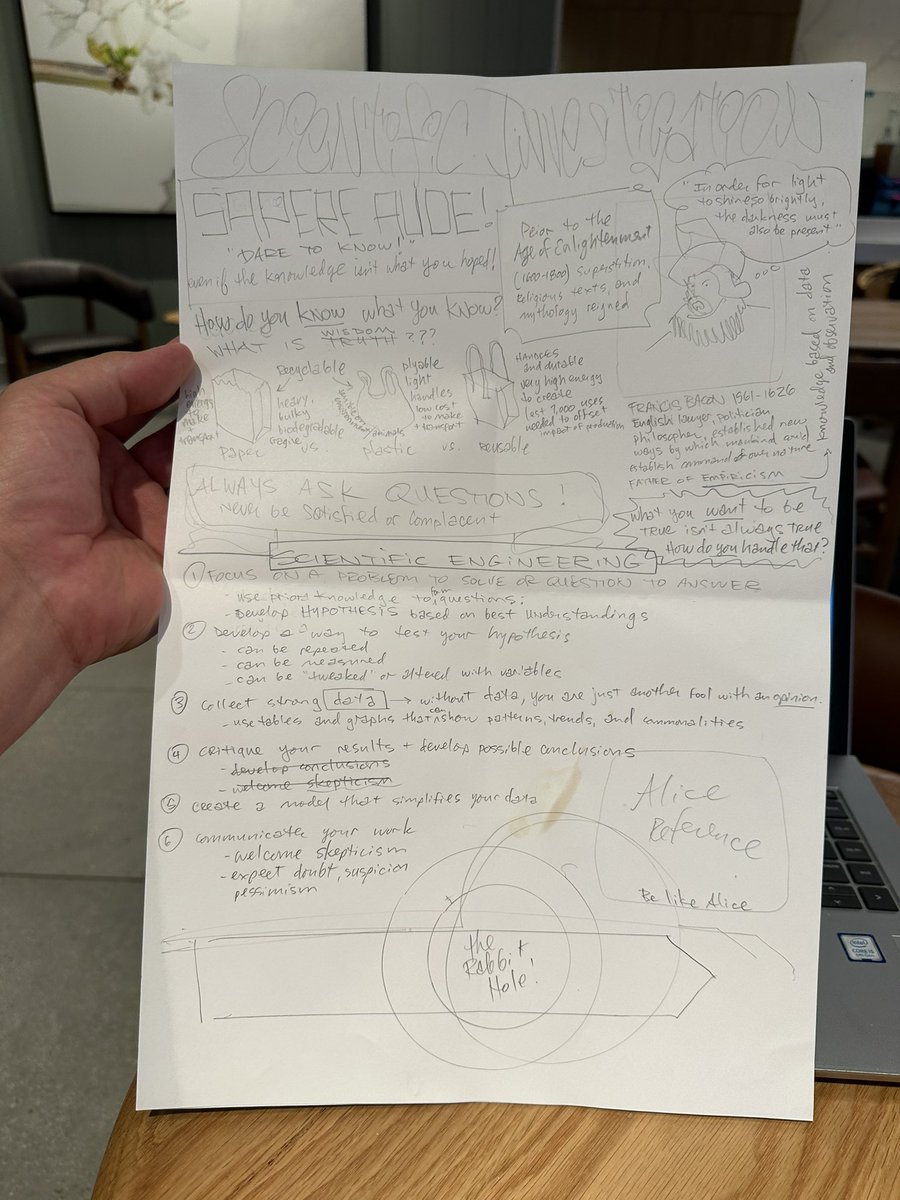 SCIENTIFIC INVESTIGATION
SAPERE AUDE!
"DARE TO KNOW!"
even if the knowledge isn't what you hoped!
Prior to the
Age of Enlightenment
(1600-1800) superstition,
religious texts, and
mythology reigned
"In order for light
to shine so brightly,
the darkness must
also be present"
How do you know what you know?
WISDOM
WHAT IS TRUTH ???
high
energy
to
make +
transport
Recyclable
heavy,
bulky
biodegradable
Paper vs. plastic vs. Reusable
plyable
light
handles
low cost
to make
+ transport
HANDLES
and durable
very high energy
to create
needed to offset
impact of production
knowledge based on data
and observation
FRANCIS BACON 1561-1626
English lawyer, politician
philosopher, established new
ways by which mankind could
establish command over nature
FATHER OF EMPIRICISM
ALWAYS ASK QUESTIONS!
Never be satisfied or complacent
What you want to be
TRUE isn't always TRUE
How do you handle that?
SCIENTIFIC ENGINEERING
① FOCUS ON A PROBLEM TO SOLVE OR QUESTION TO ANSWER
- use prior knowledge to form questions:
- Develop HYPOTHESIS based on best understandings
② Develop a way to test your hypothesis
- can be repeated
- can be measured
- can be "tweaked" or altered with variables
③ Collect strong data → without data, you are just another fool with an opinion.
- use tables and graphs that can show patterns, trends, and commonalities
④ critique your results + develop possible conclusions
- develop conclusions
- welcome skepticism
⑤ create a model that simplifies your data
⑥ communicate your work
- welcome skepticism
- expect doubt, suspicion
pessimism
Alice
Reference
Be like Alice
the
Rabbit
Hole.
intel
CORE i5